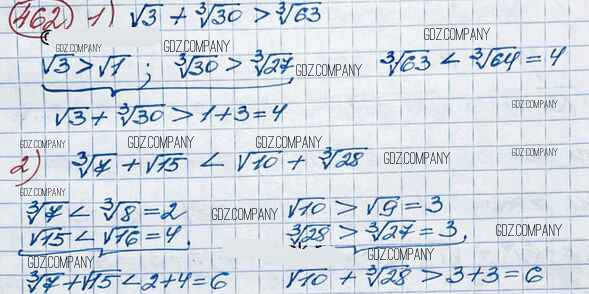 462. 1) √3 + ∛30 > ∛63
GDZ.COMPANY GDZ.COMPANY GDZ.COMPANY
√3 > √1 ; ∛30 > ∛27, GDZ.COMPANY ∛63 < ∛64 = 4
√3 + ∛30 > 1 + 3 = 4 GDZ.COMPANY
GDZ.COMPANY GDZ.COMPANY GDZ.COMPANY
2) ∛7 + √15 < √10 + ∛28 GDZ.COMPANY GDZ.COMPANY
GDZ.COMPANY
∛7 < ∛8 = 2 GDZ.COMPANY √10 > √9 = 3
√15 < √16 = 4, ∛28 > ∛27 = 3, GDZ.COMPANY
GDZ.COMPANY GDZ.COMPANY
∛7 + √15 < 2 + 4 = 6 √10 + ∛28 > 3 + 3 = 6